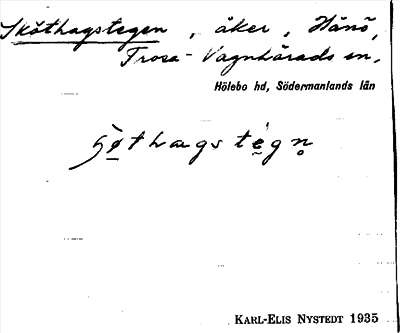 Sköthagstegen, åker, Hånö,
Trosa-Vagnhärads sn,
Hölebo hd, Södermanlands län
KARL-ELIS NYSTEDT 1935